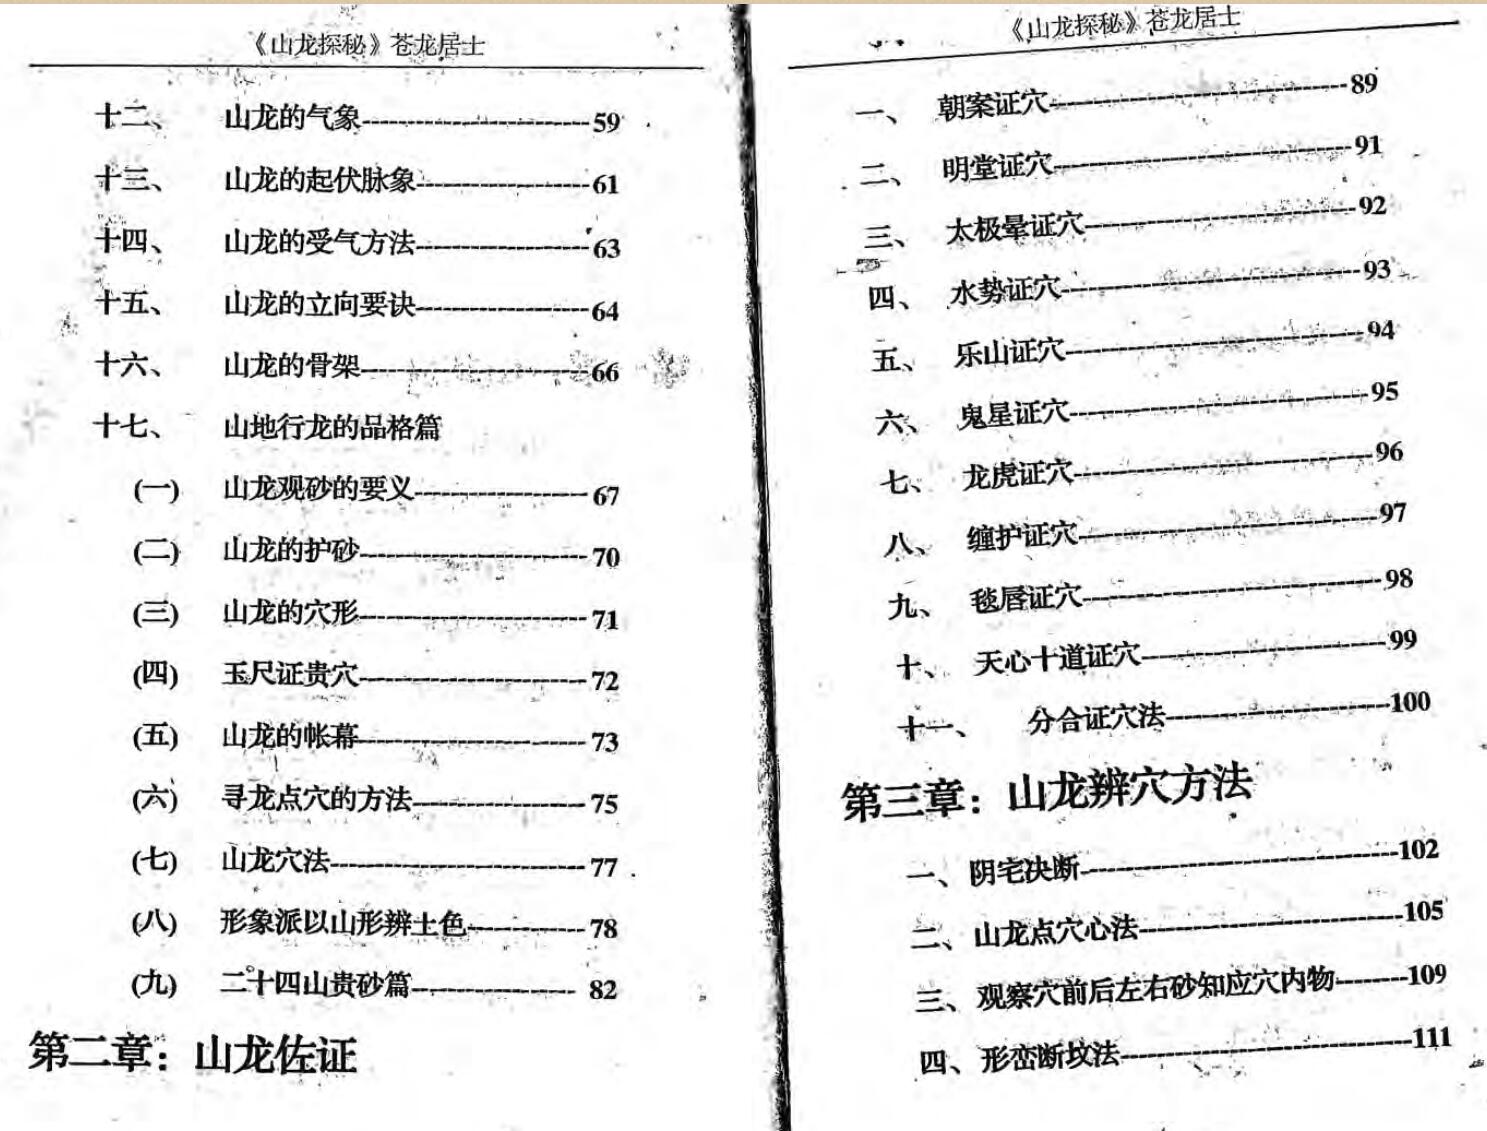 《山龙探秘》苍龙居士
十二、 山龙的气象--------------------59
十三、 山龙的起伏脉象--------------------61
十四、 山龙的受气方法--------------------63
十五、 山龙的立向要诀--------------------64
十六、 山龙的骨架--------------------66
十七、 山地行龙的品格篇
(一) 山龙观砂的要义--------------------67
(二) 山龙的护砂--------------------70
(三) 山龙的穴形--------------------71
(四) 玉尺证贵穴--------------------72
(五) 山龙的帐幕--------------------73
(六) 寻龙点穴的方法--------------------75
(七) 山龙穴法--------------------77
(八) 形象派以山形辨土色--------------------78
(九) 二十四山贵砂篇-------------------- 82
第二章：山龙佐证
《山龙探秘》苍龙居士
一、 朝案证穴--------------------89
二、 明堂证穴--------------------91
三、 太极晕证穴--------------------92
四、 水势证穴--------------------93
五、 乐山证穴--------------------94
六、 鬼星证穴--------------------95
七、 龙虎证穴--------------------96
八、 缠护证穴--------------------97
九、 毯唇证穴--------------------98
十、 天心十道证穴--------------------99
十一、 分合证穴法--------------------100
第三章：山龙辨穴方法
一、阴宅决断--------------------102
二、山龙点穴心法--------------------105
三、观察穴前后左右砂知应穴内物--------109
四、形峦断坟法--------------------111